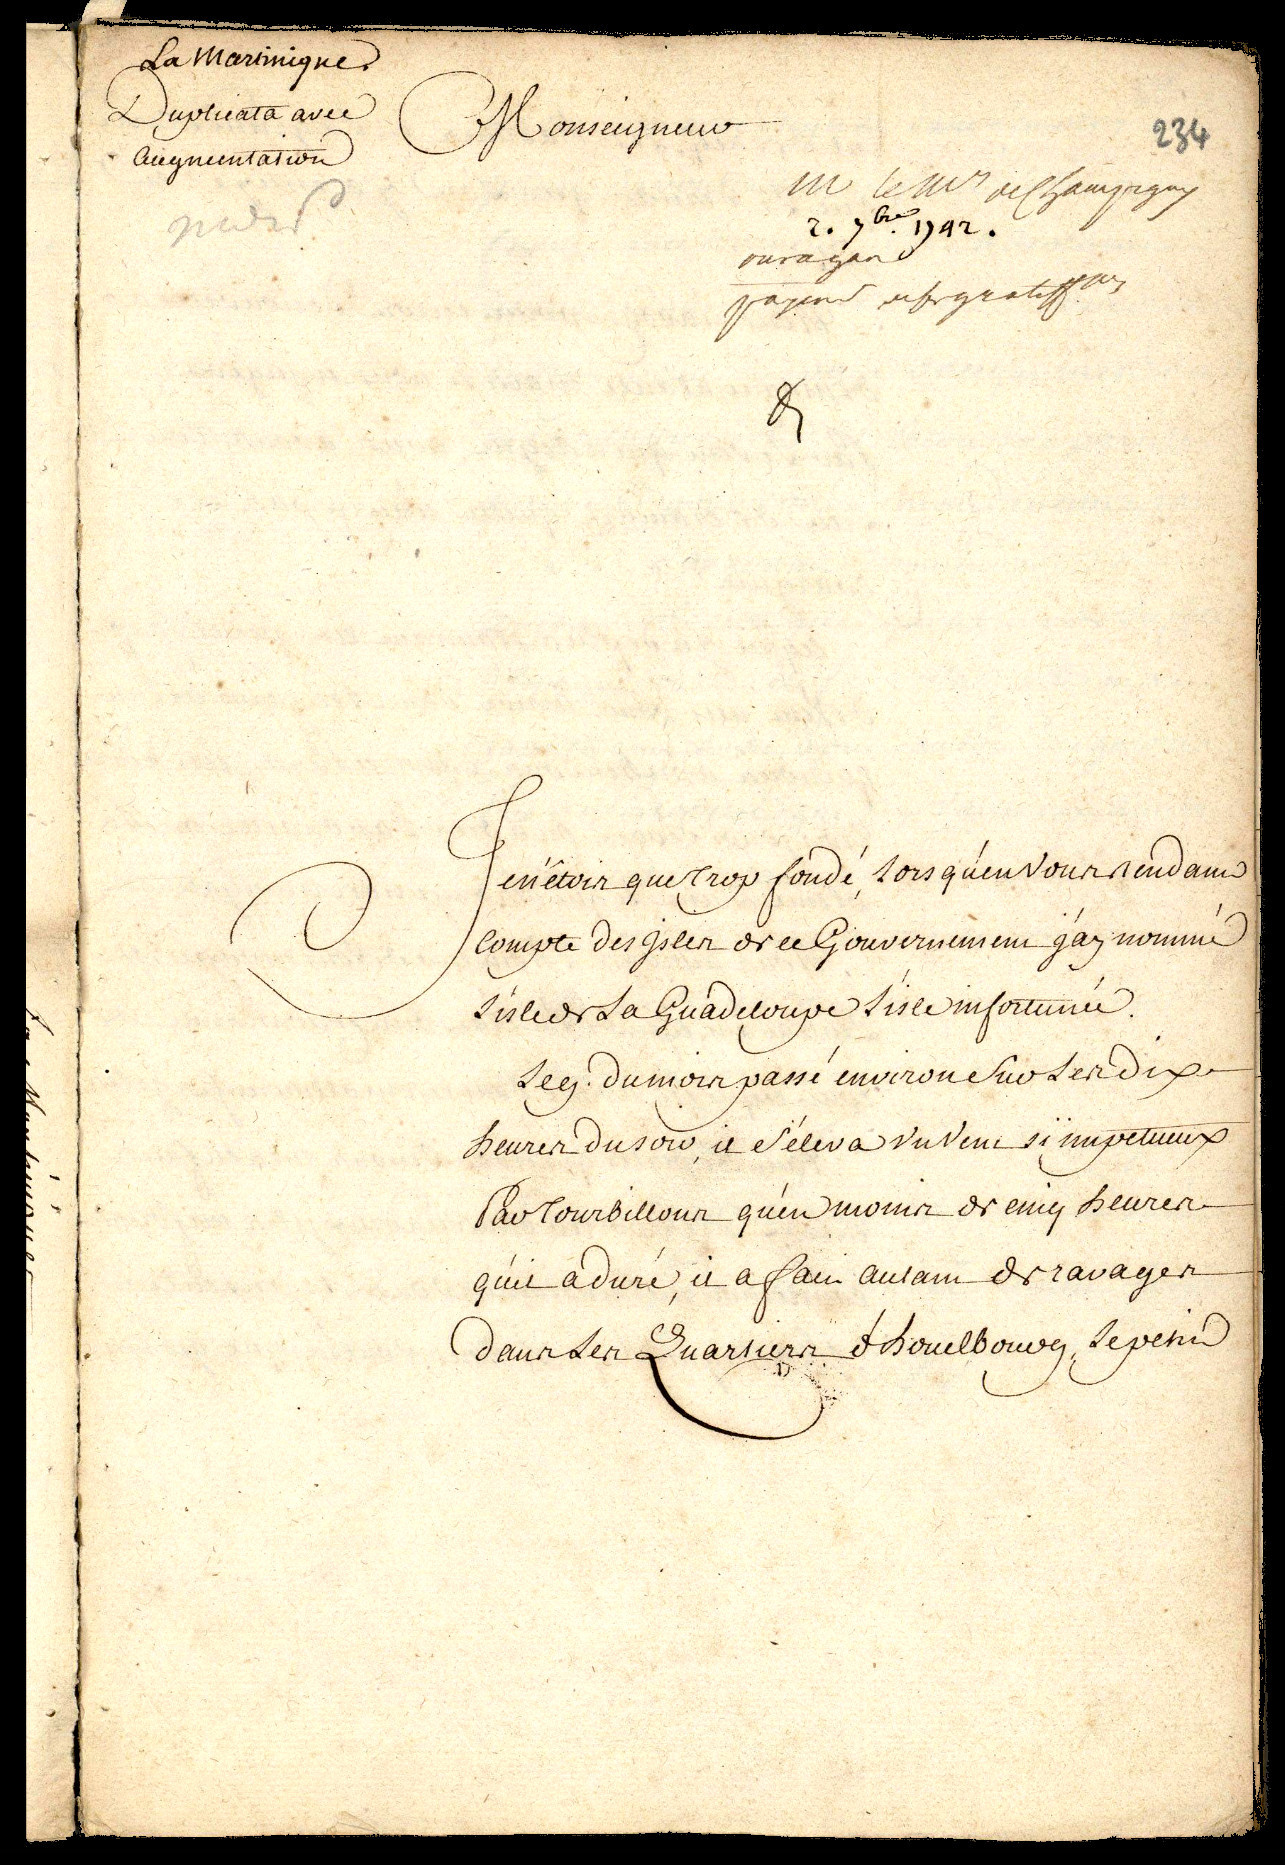 La Martinique.
Duplicata avec
augmentation
Monseigneur
234
M le Mis de Champigny
2. 7bre. 1742.
ouragan
Je n'étois que trop fondé, lors qu'en Vous rendant
Compte des jsles de ce Gouvernement j'ay nommé
L'isle de La Guadeloupe L'isle infortunée.
Le 9. du mois passé environ Sur Les dix
heures du soir, il s'éleva Un Vent si impetueux
Par Tourbillons qu'en moins de cinq heures
qu'il a duré, il a fait autant de ravages
dans Les Quartiers d'houelbourg, Le petit